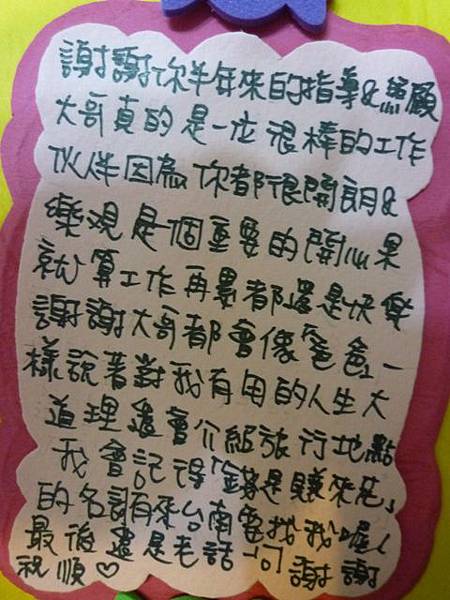 謝謝你半年來的指導&照顧
大哥真的是一位很棒的工作
伙伴因為你都很開朗&
樂觀是個重要的開心果
就算工作再累都還是快樂
謝謝大哥都會像「爸爸」一
樣說著對我有用的人生大
道理還會介紹旅行地點
我會記得「錢是賺來花」
的名調有來台南要找我喔!
最後還是老話一句謝謝
祝順♡